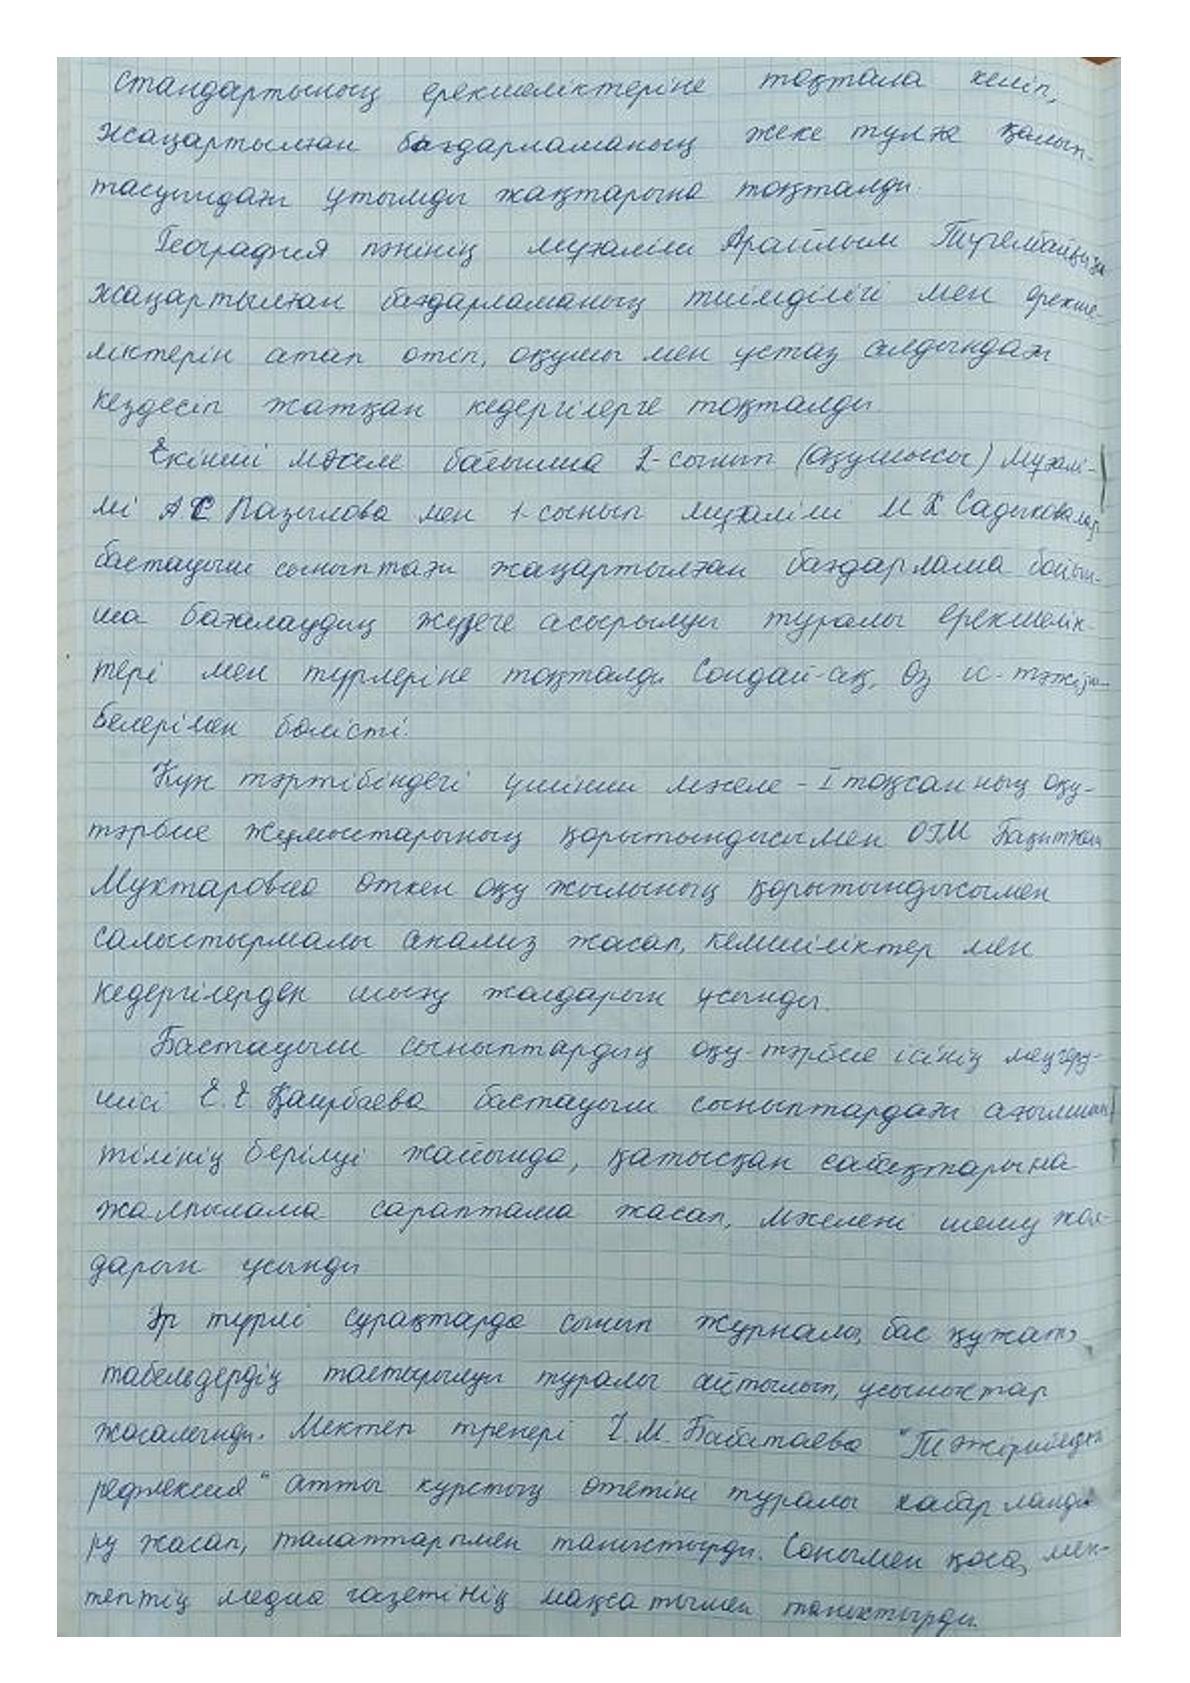 стандартының ерекшеліктеріне тоқтала келіп,
жаңартылған бағдарламаның жеке тұлға қалып-
тасуындағы ұтымды жақтарына тоқталды.
География пәнінің мұғалімі Арайлым
жаңартылған бағдарламаның тиімділігі мен ерекше-
ліктерін атап өтіп, оқушы мен ұстаз алдындағы
кездесіп жатқан кедергілерге тоқталды
Екінші мәселе бойынша 2-сынып (оқушысы) мұғалі-
мі А С Пазылова мен 1-сынып мұғалімі М К Садыковалар
бастауыш сыныптағы жаңартылған бағдарлама бойын-
ша бағалаудың жүзеге асырылуы туралы ерекшелік-
тері мен түрлеріне тоқталды Сондай-ақ, өз іс-тәжіри-
белерімен бөлісті.
Күн тәртібіндегі үшінші мәселе - I тоқсанның оқу-
тәрбие жұмыстарының қорытындысымен ОТМ Бақытжан
Мухтаровна өткен оқу жылының қорытындысымен
салыстырмалы анализ жасап, кемшіліктер мен
кедергілерден шығу жолдарын ұсынды.
Бастауыш сыныптардың оқу-тәрбие ісінің меңгеру-
шісі Е. Е. Қаирбаева бастауыш сыныптардағы ағылшын
тілінің берілуі жайында, қатысқан сабақтарына
жалпылама сараптама жасап, мәселені шешу жол-
дарын ұсынды
Әр түрлі сұрақтарда сынып журналы, бас құжат,
табельдердің толтырылуы туралы айтылып, ұсыныстар
жасалынды. Мектеп тренері Г. М. Бабатаева "Тәжірибедегі
рефлексия" атты курстың өтетіні туралы хабарланды
ру жасап, талаптарымен таныстырды. Сонымен қоса, мек-
тептің медиа газетінің мақсатымен таныстырды.